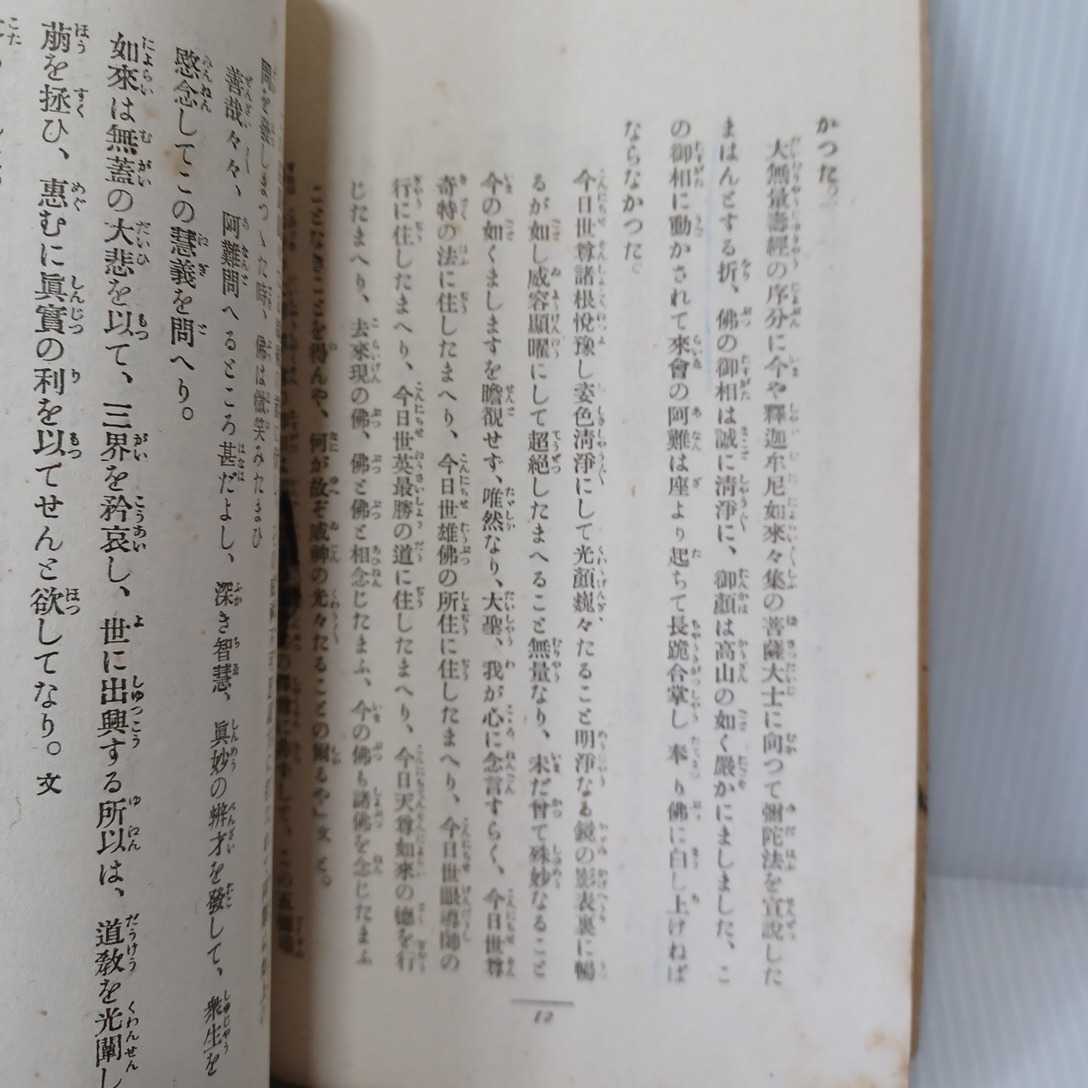 かつた。
大無量壽經の序分に今や釋迦牟尼如來々集の菩薩大士に向つて彌陀法を宣說した
まはんとする折、佛の御相は誠に清淨に、御顏は高山の如く嚴かにましました、こ
の御相に動かされて來會の阿難は座より起ちて長跪合掌し奉り佛に白し上けねば
ならなかつた。
今日世尊諸根悅豫し姿色清淨にして光顏巍々たること明淨なる鏡の影表裏に暢
るが如し威容顯曜にして超絕したまへること無量なり、未だ曾て殊妙なること
今の如くましますを瞻覩せず、唯然なり、大聖、我が心に念言すらく、今日世尊
奇特の法に住したまへり、今日世雄佛の所住に住したまへり、今日世眼導師の
行に住したまへり、今日世英最勝の道に住したまへり、今日天尊如來の德を行
じたまへり、去來現の佛、佛と佛と相念じたまふ、今の佛も諸佛を念じたまふ
ことなきことを得んや、何が故ぞ威神の光々たることの爾るや」文 と。
12
佛は微笑みたまひ
善哉々々、阿難問へるところ甚だよし、深き智慧、眞妙の辨才を發して、衆生を
愍念してこの慧義を問へり。
如來は無蓋の大悲を以て、三界を矜哀し、世に出興する所以は、道敎を光闡し
萠を拯ひ、惠むに眞實の利を以てせんと欲してなり。文